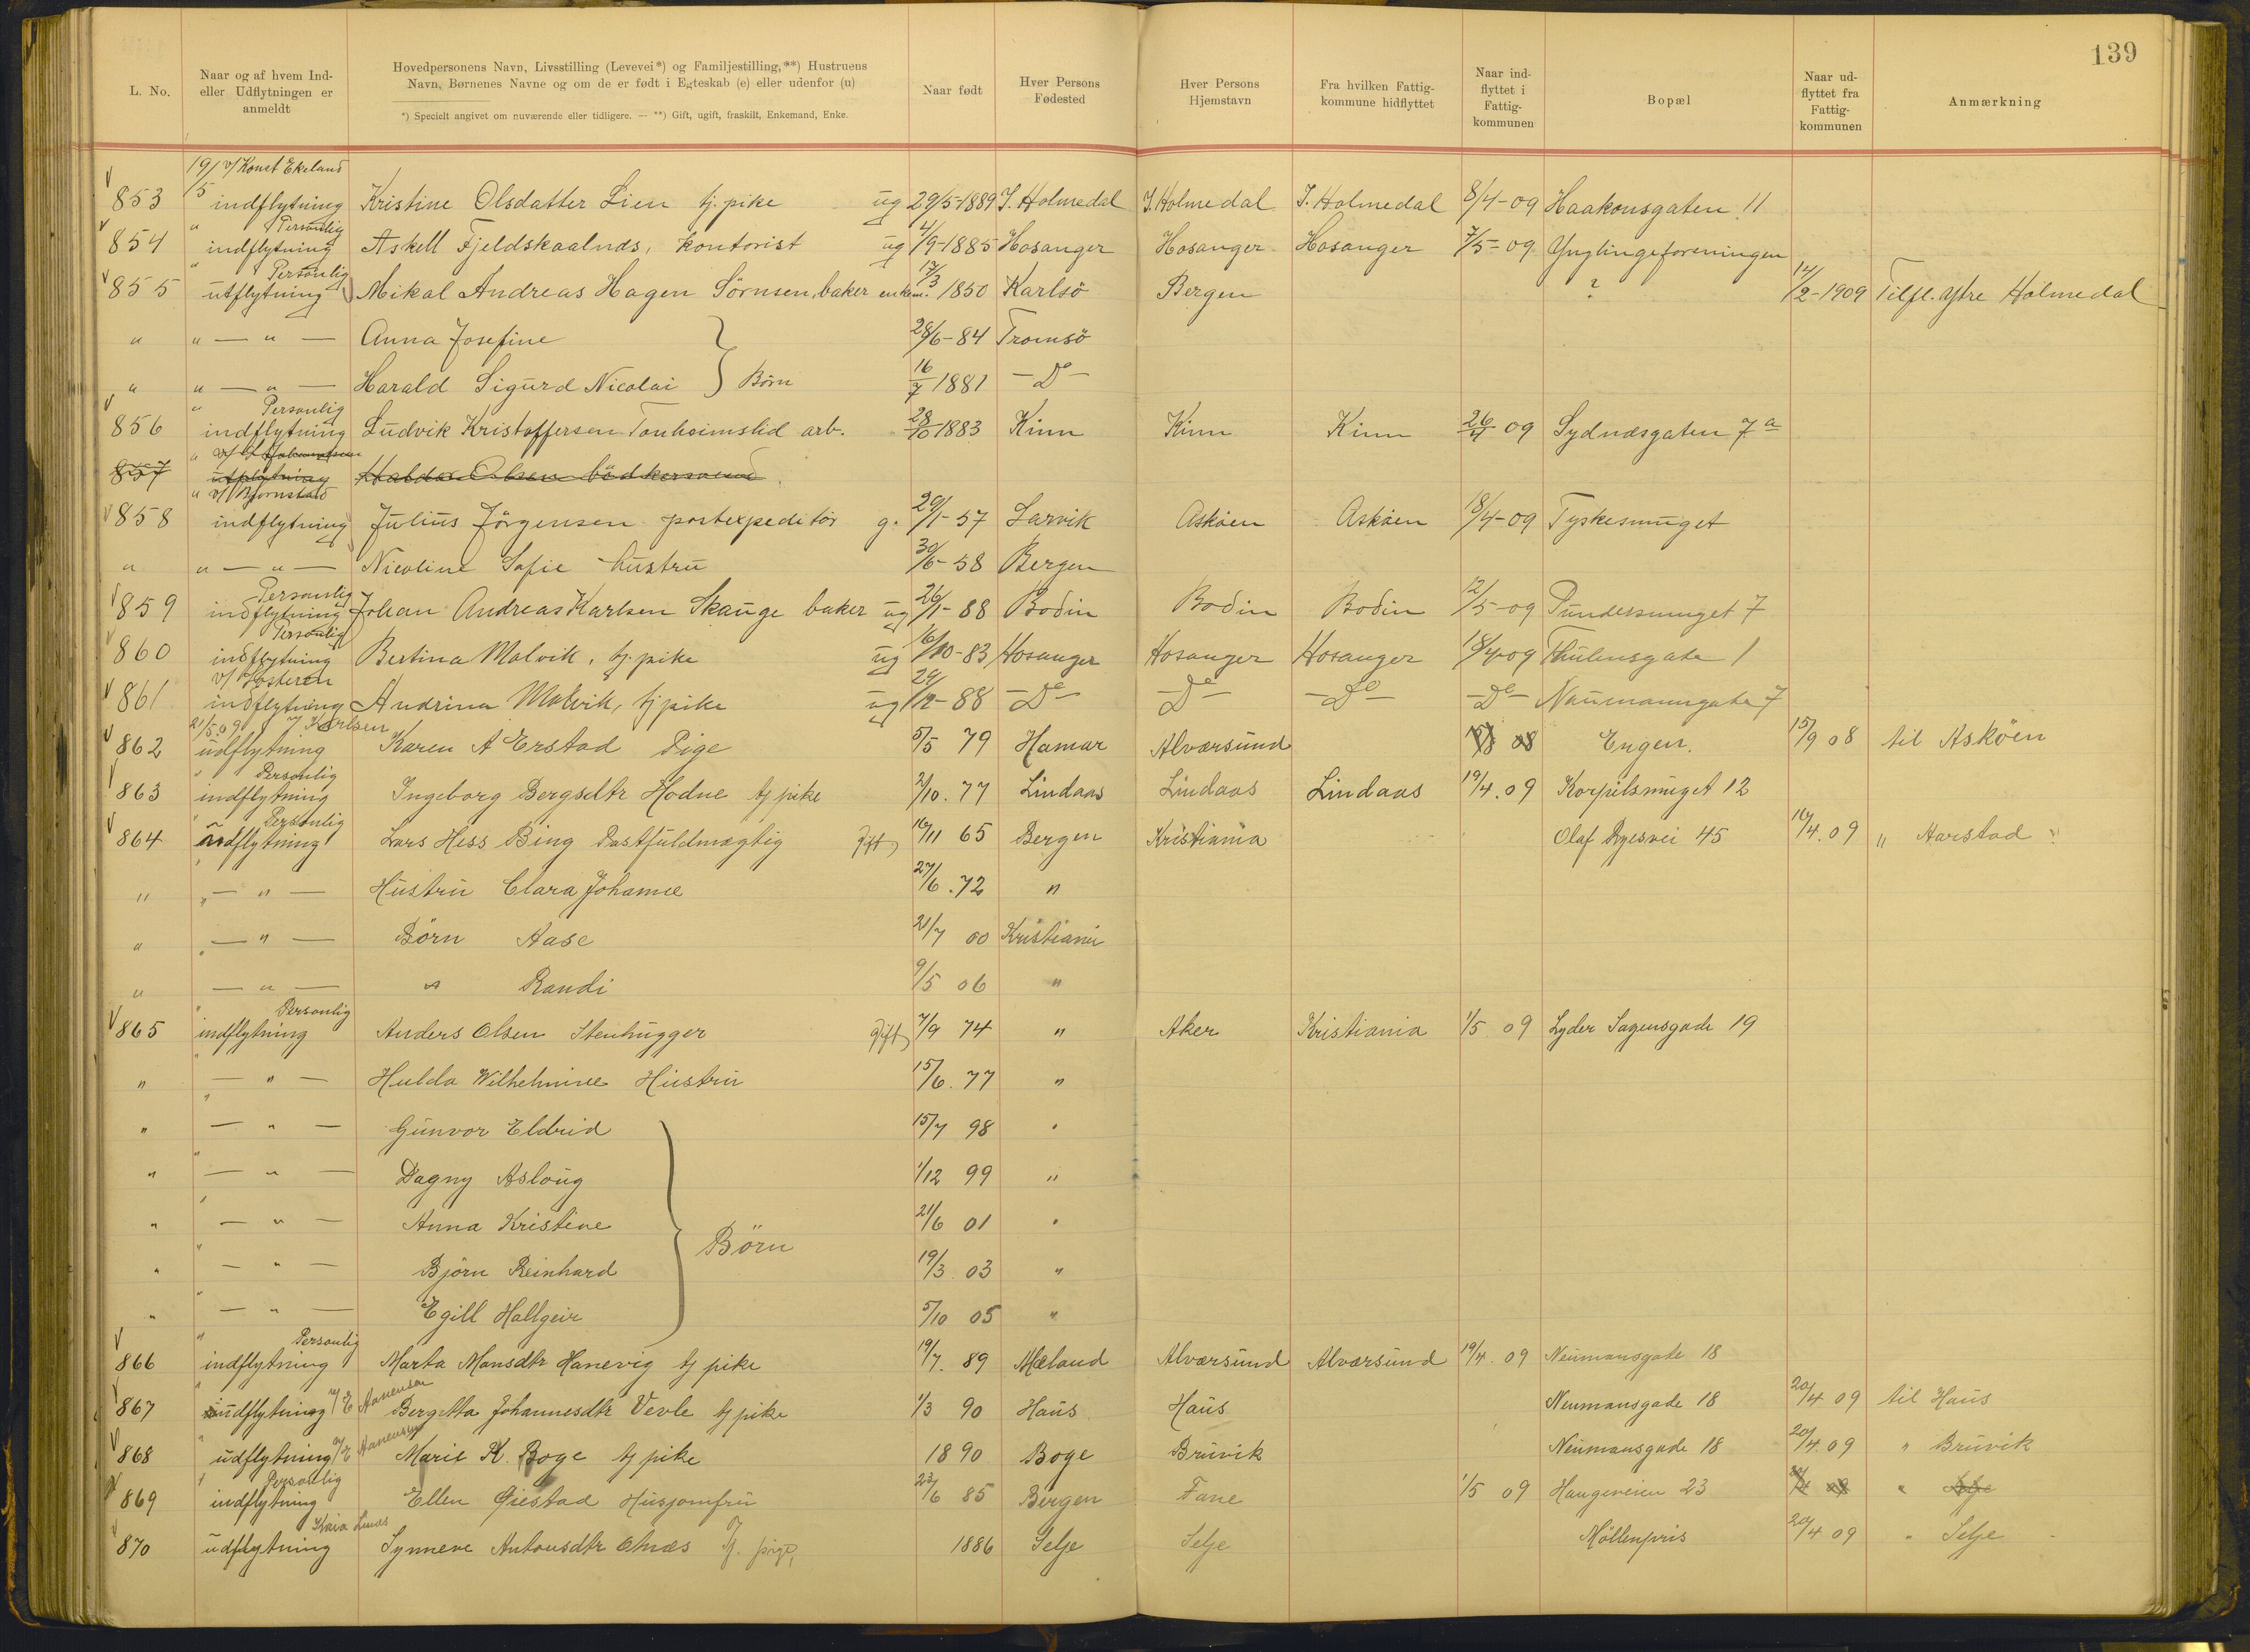 139
L. No.
Naar og af hvem Ind- eller Udflytningen er anmeldt
Hovedpersonens Navn, Livsstilling (Levevei*) og Familjestilling,**) Hustruens Navn, Børnenes Navne og om de er født i Egteskab (e) eller udenfor (u)
*) Specielt angivet om nuværende eller tidligere. — **) Gift, ugift, fraskilt, Enkemand, Enke.
Naar født
Hver Persons Fødested
Hver Persons Hjemstavn
Fra hvilken Fattigkommune hidflyttet
Naar indflyttet i Fattigkommunen
Bopæl
Naar udflyttet fra Fattigkommunen
Anmærkning
19/5 v/ Konst Ekeland
853 indflytning Kristine Olsdatter Lien tj. pike ug 29/5-1889 I. Holmedal I. Holmedal I. Holmedal 8/4-09 Haakonsgaten 11
" Personlig
854 indflytning Askell Fjeldskaalnæs, kontorist ug 4/9-1885 Hosanger Hosanger Hosanger 7/5-09 Ynglingeforeningen
" Personlig
855 utflytning Mikal Andreas Hagen Sörnsen, baker enkem. 17/3 1850 Karlsö Bergen ? 14/2-1909 Tilfl. Ytre Holmedal
" " — " — Anna Josefine 28/6-84 Tromsö
" " — " — Harald Sigurd Nicolai } Børn 16/7 1881 — Do —
" Personlig
856 indflytning Ludvik Kristoffersen Tonheimslid arb. 28/10 1883 Kinn Kinn Kinn 26/4 09 Sydnæsgaten 7a
857 utflytning Haldor Olsen bödkersvend
" v/ Bjornstad
858 indflytning Julius Jörgensen postexpeditör g. 29/1-57 Larvik Asköen Asköen 18/4-09 Tyskesmuget
" " — " — Nicoline Sofie hustru 30/6-58 Bergen
Personlig
859 indflytning Johan Andreas Karlsen Skauge baker ug 26/1-88 Bodin Bodin Bodin 12/5-09 Pundersmuget 7
Personlig
860 indflytning Bertina Molvik, tj. pike ug 16/10-83 Hosanger Hosanger Hosanger 18/4-09 Thulensgate 1
v/ Søsteren
861 indflytning Andrina Molvik, tj pike ug 29/12-88 — Do — — Do — — Do — — Do — Naumannsgate 7
21/5 09 v/ Karlsen
862 udflytning Karen A Erstad Pige 5/5 79 Hamar Alværsund 15/8 08 Engen. 15/9 08 til Asköen
" Personlig
863 indflytning Ingeborg Bergsdtr Hodne tj pike 2/10. 77 Lindaas Lindaas Lindaas 19/4. 09 Korpilsmuget 12
" Personlig
864 udflytning Lars Hess Bing Postfuldmægtig Gift 16/11 65 Bergen Kristiania Olaf Ryesvei 45 16/4. 09 " Aarstad
" " — " — Hustru Clara Johanne 27/6. 72 "
" " — " — Børn Aase 21/7 00 Kristiania
" — " — " Randi 9/5 06 "
" Personlig
865 indflytning Anders Olsen Stenhugger Gift 7/9 74 " Aker Kristiania 1/5 09 Lyder Sagensgade 19
" " — " — Hulda Wilhelmine Hustru 15/6. 77 "
" " — " — Gunvor Eldrid 15/7 98 "
" " — " — Dagny Aslaug 1/12 99 "
" " — " — Anna Kristine 21/6 01 "
Börn
" " — " — Björn Reinhard 19/3. 03 "
" " — " — Egill Hallgeir 5/10 05 "
" Personlig
866 indflytning Marta Monsdtr Hanevig tj pike 19/7. 89 Mæland Alværsund Alværsund 19/4. 09 Neumansgate 18
" v/ E Aanensen
867 udflytning Bergitta Johannesdtr Vevle tj pike 1/3 90 Haus Haus Neumansgade 18 20/4 09 til Haus
" v/ E Aanensen
868 udflytning Marie K. Boge tj pike 1890 Boge Bruvik Neumansgade 18 20/4. 09 " Bruvik
" Personlig
869 indflytning Ellen Giestad Husjomfru 23/6 85 Bergen Fane 1/5 09 Haugeveien 23 20/4 09 " Selje
870 udflytning Synneve Antonsdtr Osnæs Tj. pige, 1886 Selje Selje Möllenpris 20/4 09 " Selje